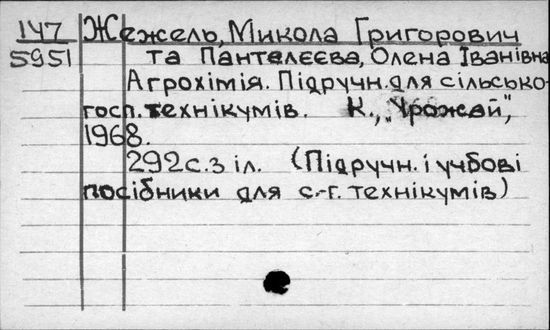 147 Жежель, Микола Григорович
5951 та Пантелєєва, Олена Іванівна
Агрохімія. Підручн. для сільсько-
госп. технікумів. К., "Урожай",
1968.
292с. з іл. (Підручн. і учбові
посібники для с.-г. технікумів)